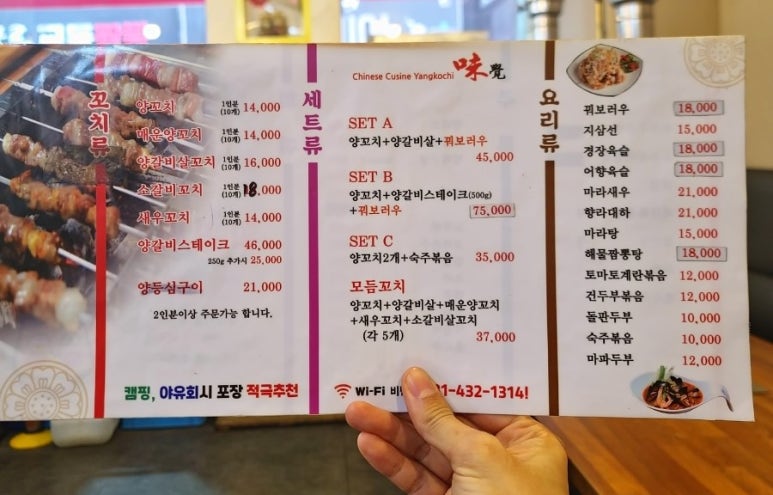 Chinese Cusine Yangkochi 味覺
꼬치류
양꼬치 1인분 (10개) 14,000
매운양꼬치 1인분 (10개) 14,000
양갈비살꼬치 1인분 (10개) 16,000
소갈비꼬치 1인분 (10개) 18,000
새우꼬치 1인분 (10개) 14,000
양갈비스테이크 46,000
250g 추가시 25,000
양등심구이 21,000
2인분이상 주문가능 합니다.
캠핑, 야유회시 포장 적극추천
세트류
SET A
양꼬치+양갈비살+꿔보러우
45,000
SET B
양꼬치+양갈비스테이크(500g)
+꿔보러우 75,000
SET C
양꼬치2개+숙주볶음 35,000
모듬꼬치
양꼬치+양갈비살+매운양꼬치
+새우꼬치+소갈비살꼬치
(각 5개) 37,000
Wi-Fi 비 1-432-1314!
요리류
꿔보러우 18,000
지삼선 15,000
경장육슬 18,000
어향육슬 18,000
마라새우 21,000
향라대하 21,000
마라탕 15,000
해물짬뽕탕 18,000
토마토계란볶음 12,000
건두부볶음 12,000
돌판두부 10,000
숙주볶음 10,000
마파두부 12,000